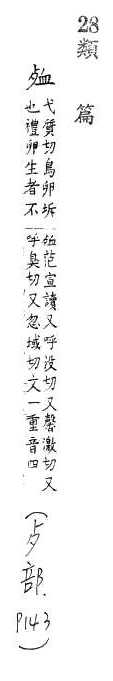 28類篇
殈
弋質切鳥卵坼
也禮卵生者不
殈范宣讀又呼没切又馨激切又
呼臭切又忽域切文一重音四
(歹部.P143)